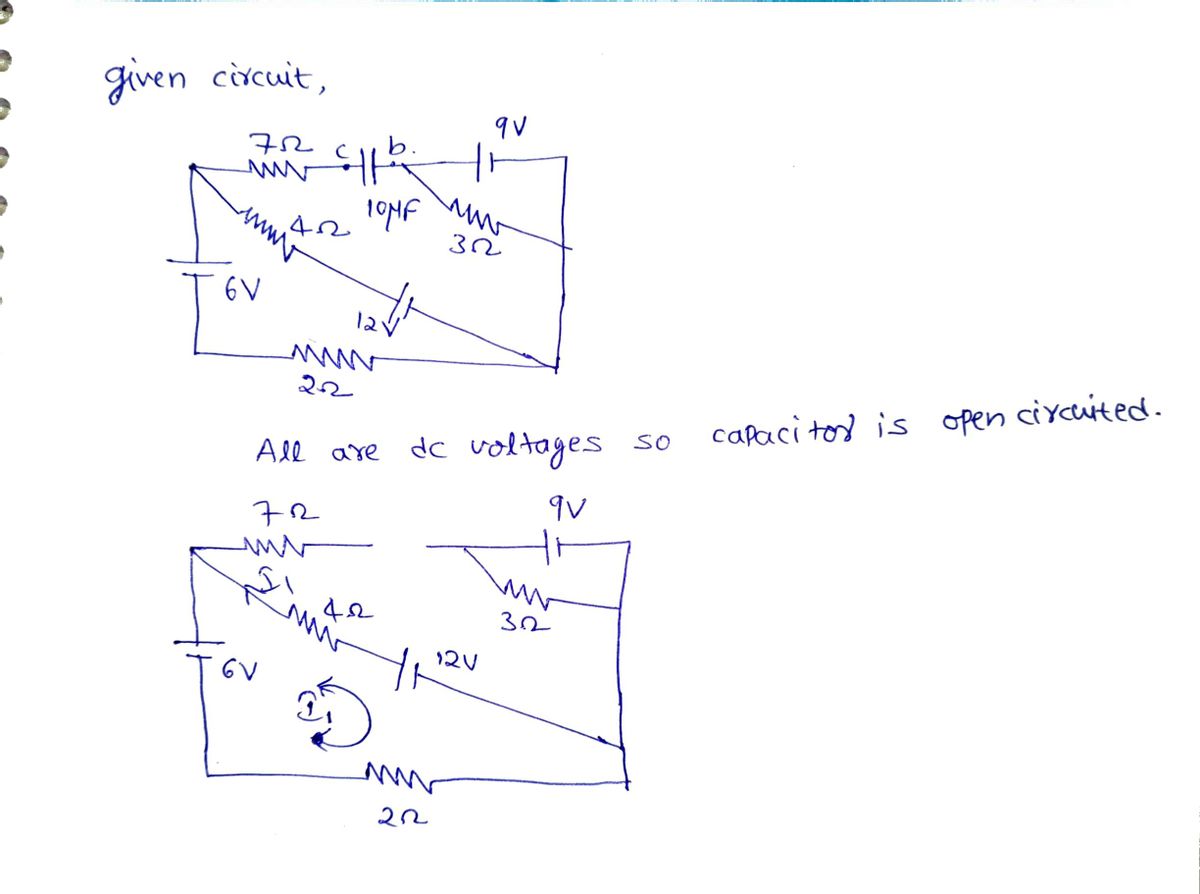 given circuit,
9V
7Ω c b.
10μF
4Ω
3Ω
6V
12V
2Ω
All are dc voltages so capacitor is open circuited.
7Ω
9V
I1
4Ω
3Ω
12V
6V
I1
2Ω